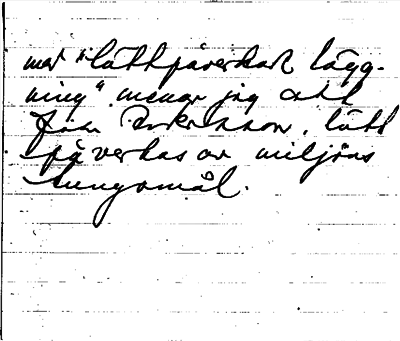 med "lättpåverkad lägg-
ning" menar jag att
fru Eriksson, lätt
påverkas av miljöns
tungomål.